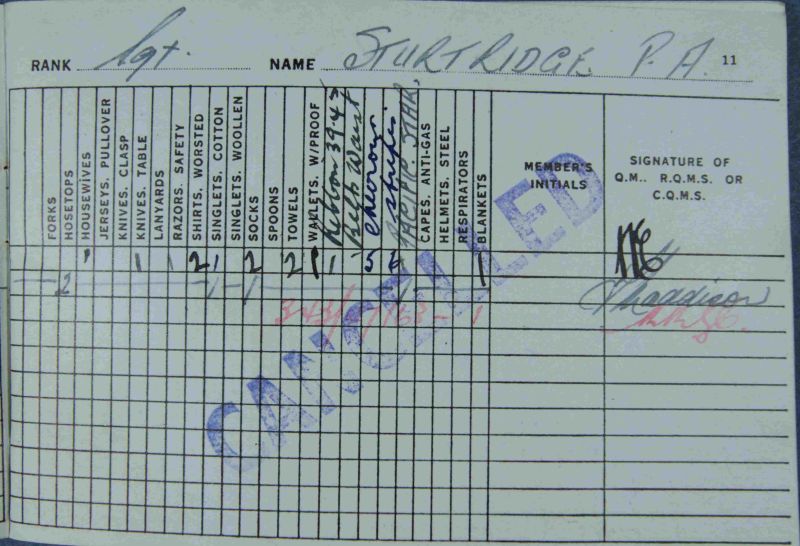 RANK Sgt. NAME STURTRIDGE. P. A. 11
FORKS
HOSETOPS
HOUSEWIVES
JERSEYS, PULLOVER
KNIVES, CLASP
KNIVES, TABLE
LANYARDS
RAZORS, SAFETY
SHIRTS, WORSTED
SINGLETS, COTTON
SINGLETS, WOOLLEN
SOCKS
SPOONS
TOWELS
WALLETS, W/PROOF
Ribbon 39-43
Belt Waist
Chevrons
Stripes
PACIFIC STAR.
CAPES, ANTI-GAS
HELMETS, STEEL
RESPIRATORS
BLANKETS
MEMBER'S INITIALS
SIGNATURE OF
Q.M., R.Q.M.S. OR
C.Q.M.S.
1 1 1 2 1 2 2 1 1 5 1
2 1 1 Maddison
1
CANCELLED